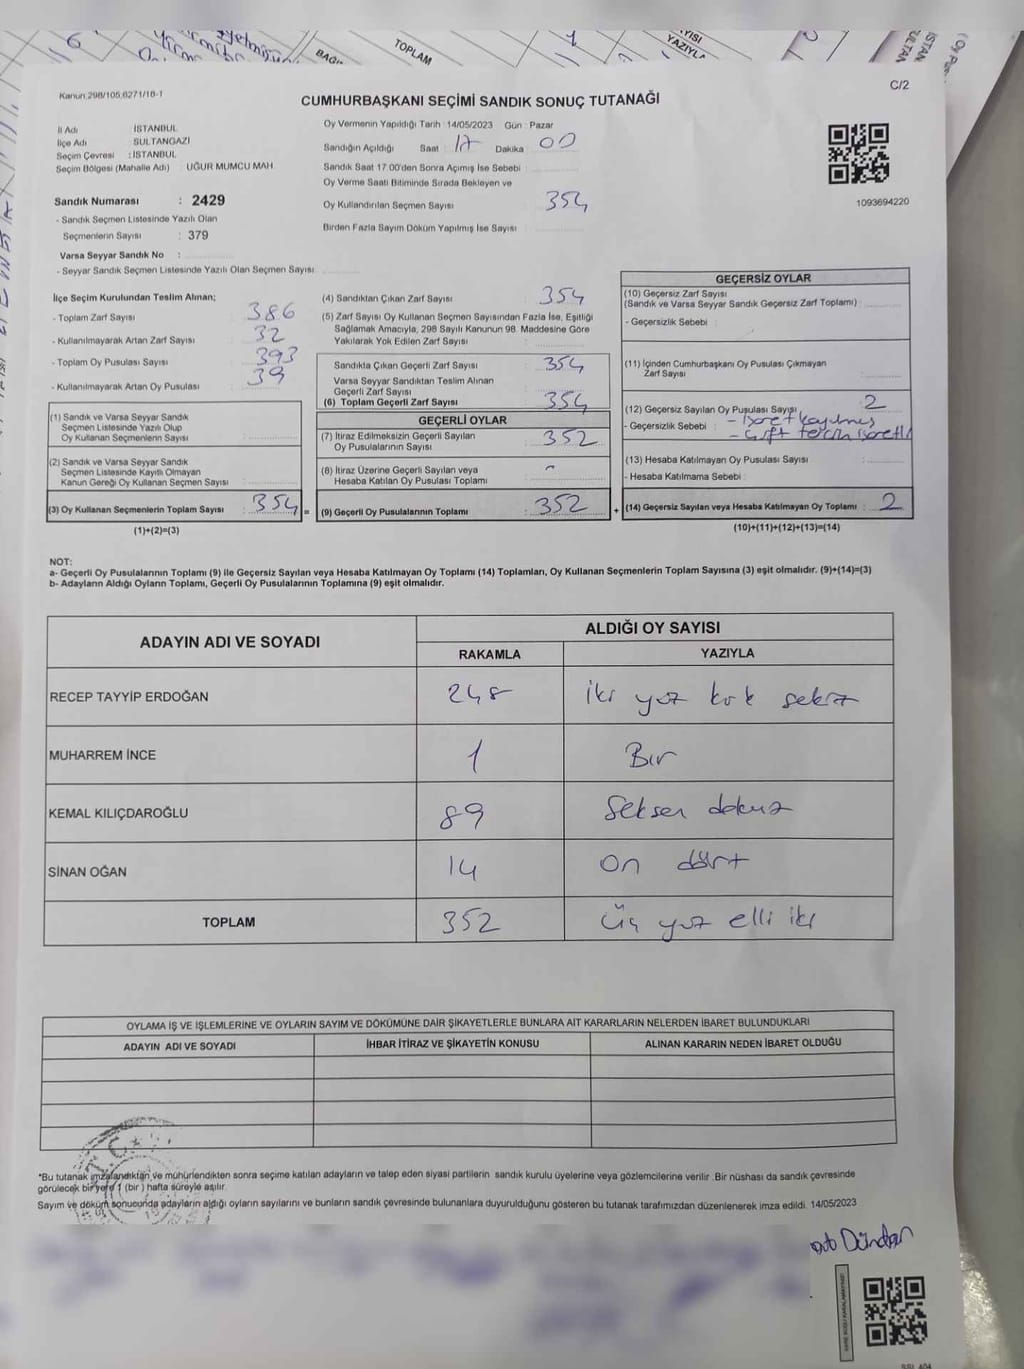 TOPLAM
YAZIYLA
C/2
Kanun 298/105,6271/16-1
CUMHURBAŞKANI SEÇİMİ SANDIK SONUÇ TUTANAĞI
İl Adı İSTANBUL
İlçe Adı SULTANGAZİ
Seçim Çevresi : İSTANBUL
Seçim Bölgesi (Mahalle Adı) : UĞUR MUMCU MAH.
Sandık Numarası : 2429
- Sandık Seçmen Listesinde Yazılı Olan
Seçmenlerin Sayısı : 379
Varsa Seyyar Sandık No :
- Seyyar Sandık Seçmen Listesinde Yazılı Olan Seçmen Sayısı:
Oy Vermenin Yapıldığı Tarih : 14/05/2023 Gün : Pazar
Sandığın Açıldığı Saat : 17 Dakika : 00
Sandık Saat 17.00'den Sonra Açımış İse Sebebi :
Oy Verme Saati Bitiminde Sırada Bekleyen ve
Oy Kullandırılan Seçmen Sayısı : 354
Birden Fazla Sayım Döküm Yapılmış İse Sayısı :
1093694220
İlçe Seçim Kurulundan Teslim Alınan;
- Toplam Zarf Sayısı : 386
- Kullanılmayarak Artan Zarf Sayısı : 32
- Toplam Oy Pusulası Sayısı : 393
- Kullanılmayarak Artan Oy Pusulası : 39
(1) Sandık ve Varsa Seyyar Sandık
Seçmen Listesinde Yazılı Olup
Oy Kullanan Seçmenlerin Sayısı :
(2) Sandık ve Varsa Seyyar Sandık
Seçmen Listesinde Kayıtlı Olmayan
Kanun Gereği Oy Kullanan Seçmen Sayısı :
(3) Oy Kullanan Seçmenlerin Toplam Sayısı : 354 =
(1)+(2)=(3)
(4) Sandıktan Çıkan Zarf Sayısı : 354
(5) Zarf Sayısı Oy Kullanan Seçmen Sayısından Fazla İse, Eşitliği
Sağlamak Amacıyla, 298 Sayılı Kanunun 98. Maddesine Göre
Yakılarak Yok Edilen Zarf Sayısı :
Sandıkta Çıkan Geçerli Zarf Sayısı : 354
Varsa Seyyar Sandıktan Teslim Alınan
Geçerli Zarf Sayısı :
(6) Toplam Geçerli Zarf Sayısı : 354
GEÇERLİ OYLAR
(7) İtiraz Edilmeksizin Geçerli Sayılan
Oy Pusulalarının Sayısı : 352
(8) İtiraz Üzerine Geçerli Sayılan veya
Hesaba Katılan Oy Pusulası Toplamı : -
(9) Geçerli Oy Pusulalarının Toplamı : 352 +
GEÇERSİZ OYLAR
(10) Geçersiz Zarf Sayısı
(Sandık ve Varsa Seyyar Sandık Geçersiz Zarf Toplamı) :
- Geçersizlik Sebebi :
(11) İçinden Cumhurbaşkanı Oy Pusulası Çıkmayan
Zarf Sayısı :
(12) Geçersiz Sayılan Oy Pusulası Sayısı : 2
- Geçersizlik Sebebi : - işaret kayılmış
- Çift tercih işaretli
(13) Hesaba Katılmayan Oy Pusulası Sayısı :
- Hesaba Katılmama Sebebi :
(14) Geçersiz Sayılan veya Hesaba Katılmayan Oy Toplamı : 2
(10)+(11)+(12)+(13)=(14)
NOT:
a- Geçerli Oy Pusulalarının Toplamı (9) ile Geçersiz Sayılan veya Hesaba Katılmayan Oy Toplamı (14) Toplamları, Oy Kullanan Seçmenlerin Toplam Sayısına (3) eşit olmalıdır. (9)+(14)=(3)
b- Adayların Aldığı Oyların Toplamı, Geçerli Oy Pusulalarının Toplamına (9) eşit olmalıdır.
ADAYIN ADI VE SOYADI ALDIĞI OY SAYISI
RAKAMLA YAZIYLA
RECEP TAYYİP ERDOĞAN 248 iki yüz kırk sekiz
MUHARREM İNCE 1 Bir
KEMAL KILIÇDAROĞLU 89 Seksen dokuz
SİNAN OĞAN 14 on dört
TOPLAM 352 üç yüz elli iki
OYLAMA İŞ VE İŞLEMLERİNE VE OYLARIN SAYIM VE DÖKÜMÜNE DAİR ŞİKAYETLERLE BUNLARA AİT KARARLARIN NELERDEN İBARET BULUNDUKLARI
ADAYIN ADI VE SOYADI İHBAR İTİRAZ VE ŞİKAYETİN KONUSU ALINAN KARARIN NEDEN İBARET OLDUĞU
*Bu tutanak imzalandıktan ve mühürlendikten sonra seçime katılan adayların ve talep eden siyasi partilerin sandık kurulu üyelerine veya gözlemcilerine verilir. Bir nüshası da sandık çevresinde
görülecek bir yere 1 (bir) hafta süreyle asılır.
Sayım ve döküm sonucunda adayların aldığı oyların sayılarını ve bunların sandık çevresinde bulunanlara duyurulduğunu gösteren bu tutanak tarafımızdan düzenlenerek imza edildi. 14/05/2023
Dündar